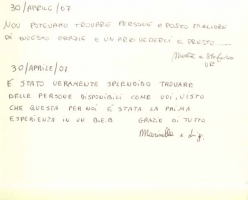 30/APRILE/07
NON POTEVAMO TROVARE PERSONE E POSTO MIGLIORE
DI QUESTO GRAZIE E UN ARRIVEDERCI A PRESTO
30/APRILE/07
E' STATO VERAMENTE SPLENDIDO TROVARE
DELLE PERSONE DISPONIBILI COME VOI, VISTO
CHE QUESTA PER NOI E' STATA LA PRIMA
ESPERIENZA IN UN B.&B. GRAZIE DI TUTTO